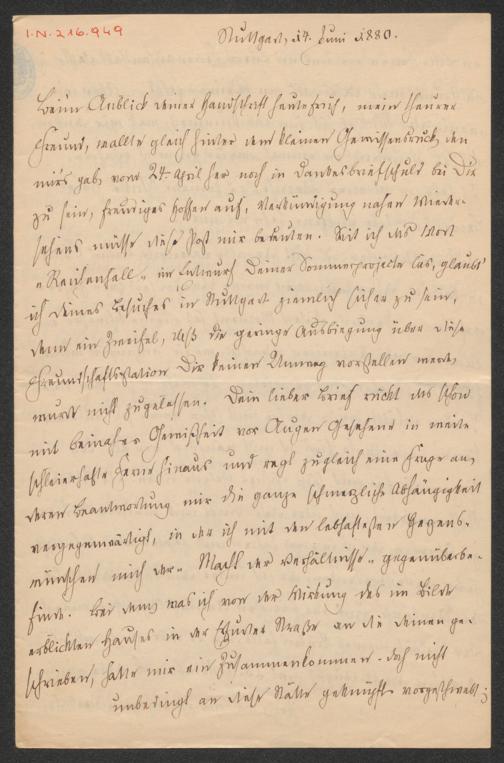 I.N. 216.949
Stuttgart, 14. Juni 1880.
Beim Anblick deiner Handschrift heute früh, mein theurer
Freund, wallte gleich hinter dem kleinen Gewissensdruck, den
mir's gab, vom 24. April her noch in Dankesbriefschuld bei Dir
zu sein, freudiges Hoffen auf, Verkündigung nahen Wieder-
sehens müsse diese Post mir bedeuten. Seit ich das Wort
„Reichenhall" im Entwurf Deiner Sommerprojecte las, glaubt'
ich Deines Besuches in Stuttgart ziemlich sicher zu sein,
denn ein Zweifel, daß die geringe Ausbiegung über diese
Freundschaftsstation Dir keinen Umweg vorstellen werde,
wurde nicht zugelassen. Dein lieber Brief rückt das schon
mit beinaher Gewißheit vor Augen Gesehene in weite
schleierhafte Ferne hinaus und regt zugleich eine Frage an,
deren Beantwortung mir die ganze schmerzliche Abhängigkeit
vergegenwärtigt, in der ich mit den lebhaftesten Gegens-
wünschen mich der „Macht der Verhältnisse" gegenüberbe-
finde. Bei dem, was ich von der Wirkung des im Bilde
erblickten Hauses in der Straße an die Deinen ge-
schrieben, hatte mir ein Zusammenkommen - doch nicht
unbedingt an diese Stätte geknüpft - vorgeschwebt;